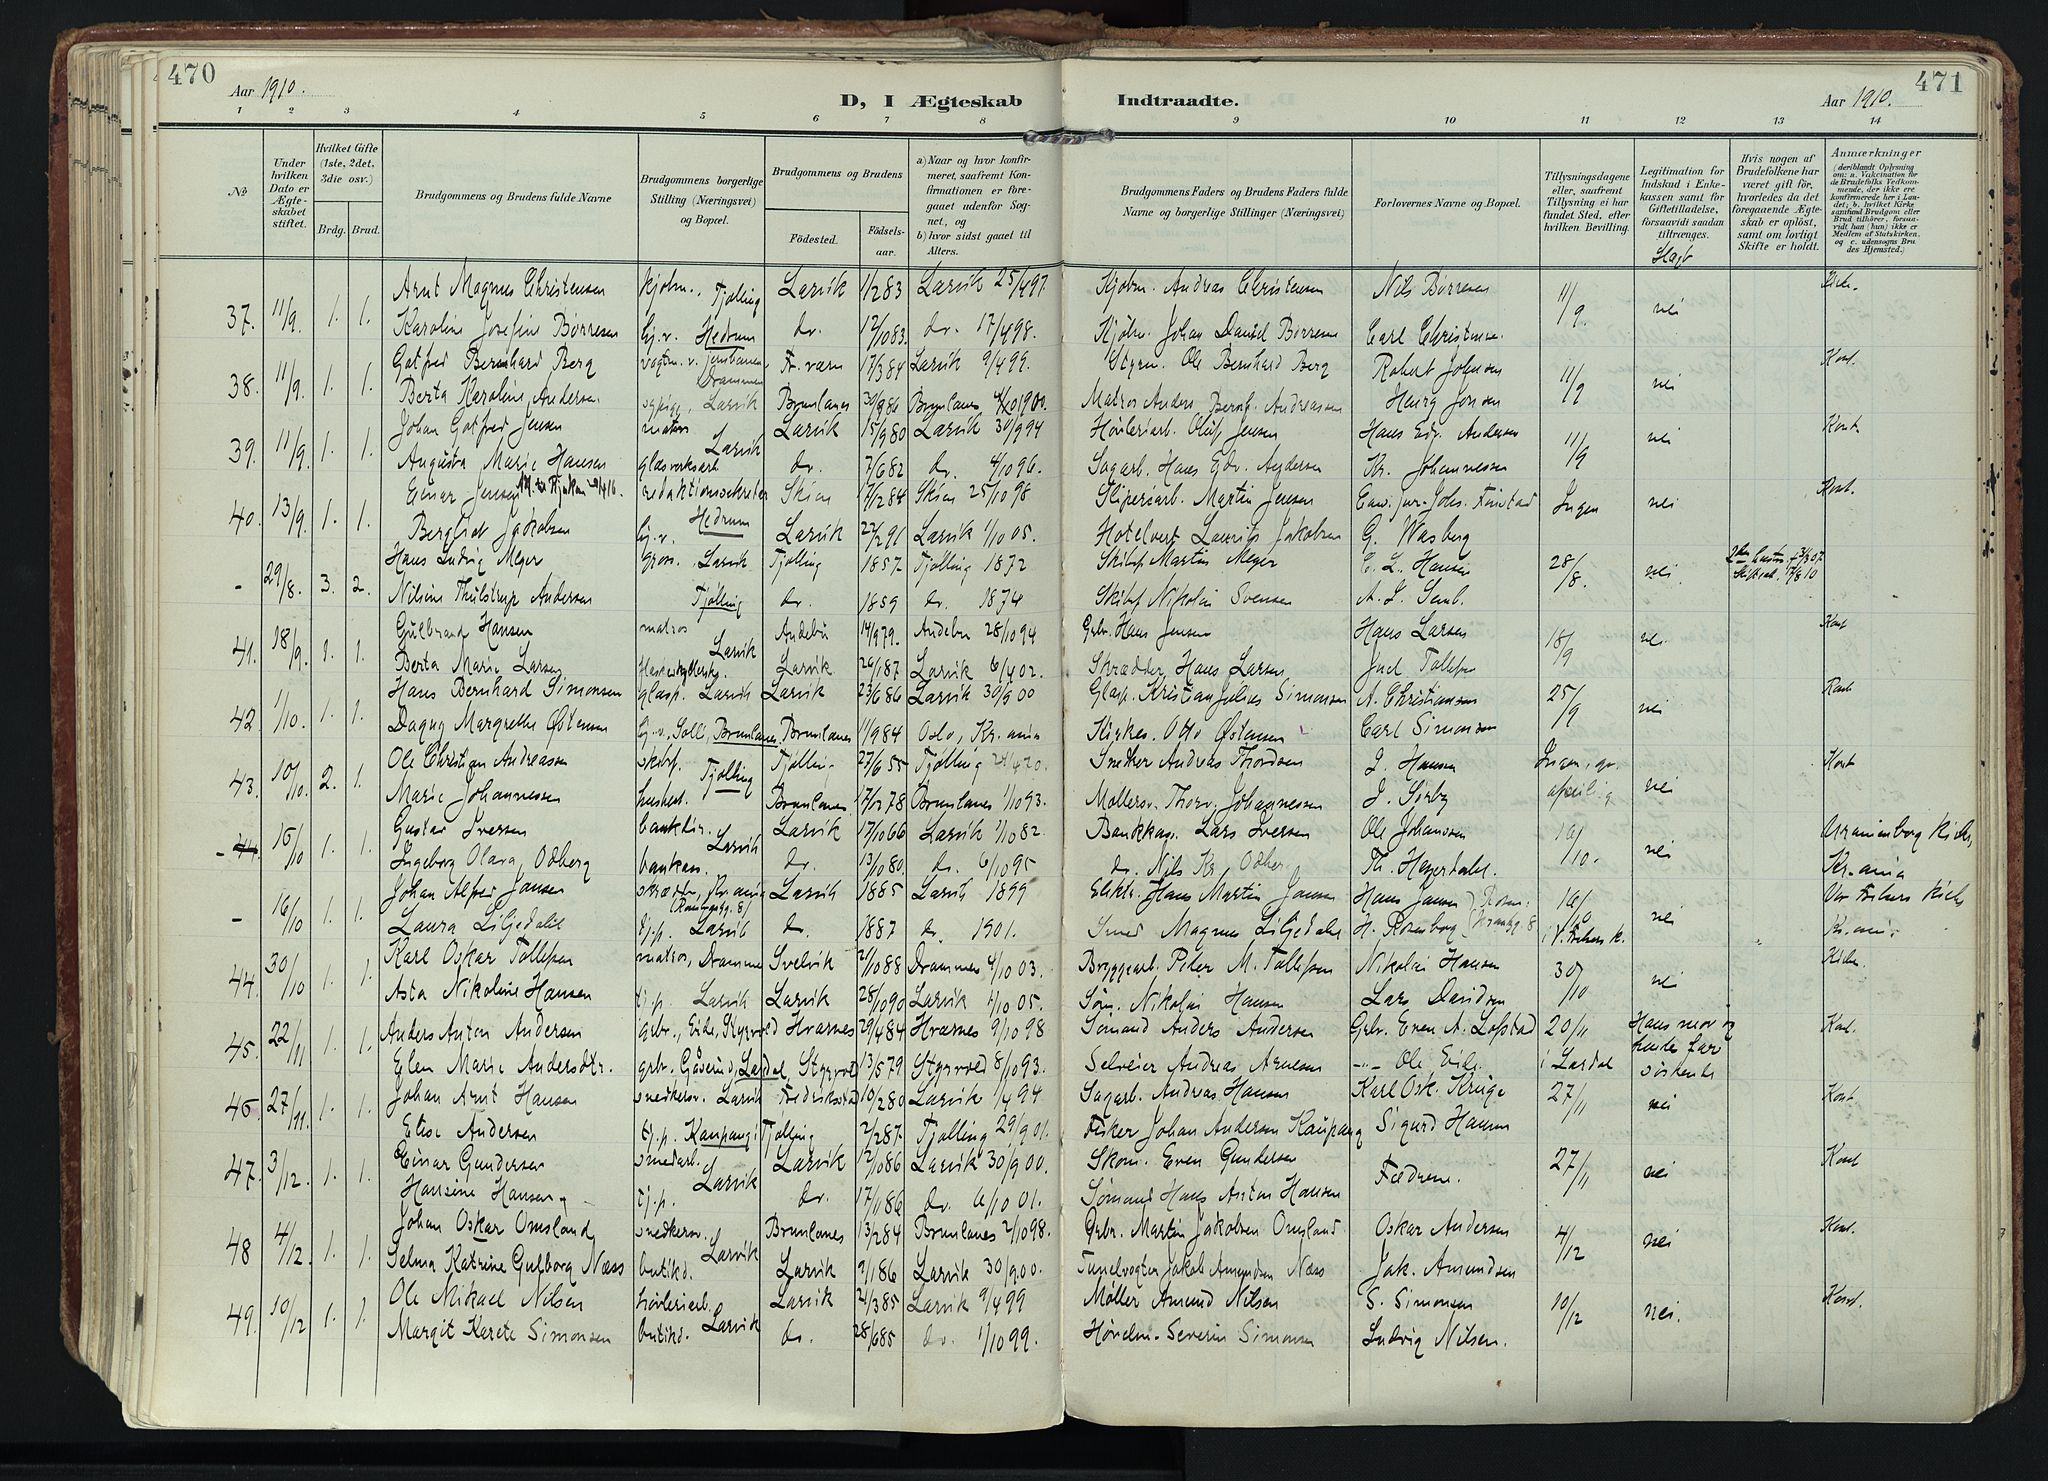 470
Aar 1910.
D, I Ægteskab
Indtraadte.
Aar 1910.
471
1 2 3 4 5 6 7 8 9 10 11 12 13 14
No.
Under hvilken Dato er Ægteskabet stiftet.
Hvilket Gifte (1ste, 2det, 3die osv.)
Brdg. Brud.
Brudgommens og Brudens fulde Navne
Brudgommens borgerlige Stilling (Næringsvei) og Bopæl.
Brudgommens og Brudens
Fødested.
Fødselsaar.
a) Naar og hvor konfirmeret, saafremt Konfirmationen er foregaaet udenfor Sognet, og
b) hvor sidst gaaet til Alters.
Brudgommens Faders og Brudens Faders fulde Navne og borgerlige Stillinger (Næringsvei)
Forlovernes Navne og Bopæl.
Tillysningsdagene eller, saafremt Tillysning ei har fundet Sted, efter hvilken Bevilling.
Legitimation for Indskud i Enkekassen samt for Giftetilladelse, forsaavidt saadan tiltrænges.
Hvis nogen af Brudefolkene har været gift før, hvorledes da det foregaaende Ægteskab er opløst, samt om lovligt Skifte er holdt.
Anmærkninger
(deriblandt Oplysning om: a. Vakcination for de Brudefolks Vedkommende, der ikke ere konfirmerede her i Landet; b. hvilket Kirkesamfund Brudgom eller Brud tilhører, forsaavidt han (hun) ikke er Medlem af Statskirken, og c. udensogns Brudes Hjemsted.)
37. 11/9. 1. 1. Arnt Magnus Christensen kjøbm., Tjølling Larvik 1/283 Larvik 25/497. Kjøbm. Andreas Christensen Nils Børresen 11/9 nei
Karoline Josefine Børresen Hedrum do. 12/1083. do. 17/498. Kjøbm. Johan Daniel Børresen Carl Christensen
38. 11/9. 1. 1. Gotfred Bernhard Berg Drammen Fr.værn 17/384 Larvik 9/499. Ole Bernhard Berg Robert Johnsen 11/9 nei Kont.
Berta Karoline Andersen sypige, Larvik Brunlanes 30/986 Brunlanes 4/101900. Matros Anders Andreassen Jensen
39. 11/9. 1. 1. Johan Gotfred Jensen matros Larvik Larvik 15/980 Larvik 30/994 Høvleriarb. Oluf Jensen Hans Edv. Andersen 11/9 nei Kont.
Augusta Marie Hansen glasverksarb. do. 7/682 do. 4/1096. Sagarb. Hans Edv. Andersen Kr. Johannessen
40. 13/9. 1. 1. Einar Jensen redaktionssekretær Hedrum Skien 7/1284 Skien 25/1098 Sliperiarb. Martin Jensen Ingen nei Kont.
Bergliot Jakobsen Larvik 22/291 Larvik 1/1005. Hotelvert Lauritz Jakobsen G. Wasberg
- 29/8. 3. 2. Hans Ludvig Meyer gros. Larvik Tjølling 1857 Tjølling 1872 Skibsf. Martin Meyer C. L. Hansen 28/8. nei
Nilsine Thulstrup Andersen Tjølling do. 1859 do. 1874 Skibsf. Nikolai Svensen A. L. Semb.
41. 18/9. 1. 1. Gulbrand Hansen matros Larvik Andebu 14/979. Andebu 28/1094 Grbr. Hans Jensen Hans Larsen 18/9 nei Kont
Berta Marie Larsen Larvik 26/187 Larvik 6/402. Skrædder Hans Larsen Joel Tollefsen
42. 1/10. 1. 1. Hans Bernhard Simonsen glasp. Larvik Larvik 23/686 Larvik 30/900 Glasp. Kristian Julius Simonsen A. Christiansen 25/9 nei Kont
Dagny Margrethe Østensen Brunlanes. Brunlanes 11/984 Oslo, Kr.ania Kirkes. Otto Østensen Carl Simonsen
43. 10/10. 2. 1. Ole Christian Andreassen skibsf. Tjølling Tjølling 27/655 Tjølling Snedker Andreas Thordsen J. Hansen nei Kont
Marie Johannessen Brunlanes 17/1278 Brunlanes 1/1093. Møllersv. Thorv. Johannessen J. Sørby
- 44. 15/10 1. 1. Gustav Iversen Larvik Larvik 17/1066 Larvik 1/1082. Bankkas. Lars Iversen Ole Johansen 16/10. nei Uranienborg Kirke,
Ingeborg Olava Odberg bankass. do. 13/1080. do. 6/1095 do. Nils Kr. Odberg Th. Heyerdahl. Kr.ania
- 16/10 1. 1. Johan Alfred Jansen skrædder, Kr.ania Larvik 1885 Larvik 1899 Hans Martin Jansen Hans Jansen 16/10 nei Vor Frelsers Kirke
Laura Liljedahl tj.p. Larvik do. 1887 do. 1901. Smed Magnus Liljedahl H. Rosenborg i V. Frelsers k. Kr.ania
44. 30/10 1. 1. Karl Oskar Tollefsen matros, Drammen Svelvik 2/1088 Drammen 4/1003. Bryggearb. Peter M. Tollefsen Nikolai Hansen 30/10 nei Kirke.
Asta Nikoline Hansen tj.p. Larvik Larvik 28/1090 Larvik 1/1005. Søm. Nikolai Hansen Lars Davidsen
45. 22/11 1. 1. Anders Anton Andersen grbr., Eide, Styrvold Hvarnes 29/484 Hvarnes 9/1098 Sømand Anders Andersen Grbr. Even A. Lofstad 20/11 Hans mor og Kont.
Elen Marie Andersdtr. grbr. Gåserud, Lardal, Styrvold 13/579 Styrvold 8/1093. Selveier Andreas Arnesen -"- Ole Eide. i Lardal hendes far søskende
46. 27/11. 1. 1. Johan Arnt Hansen snedkersv. Larvik Fredriksstad 10/280 Larvik 1/494 Sagarb. Andreas Hansen Karl Osk. Krüge 27/11 nei Kont
Elise Andersen tj.p. Kaupang i Tjølling 2/287. Tjølling 29/901. Fisker Johan Andersen Kaupang Sigurd Hansen
47. 3/12. 1. 1. Einar Gundersen smedarb. Larvik Larvik 2/1086 Larvik 30/900. Skom. Even Gundersen Fædrene. 27/11 nei Kont
Hansine Hansen tj.p. do. 17/1186 do. 6/1001. Sømand Hans Anton Hansen
48 4/12. 1. 1. Johan Oskar Omsland snedkersv. Larvik Brunlanes 13/284 Brunlanes 2/1098. Grbr. Martin Jakobsen Omsland Oskar Andersen 4/12 nei Kont.
Selma Katrine Gulborg Næss butikd. Larvik 9/186 Larvik 30/900. Tunelvogter Jakob Amundsen Næss Jak. Amundsen
49. 10/12 1. 1. Ole Mikael Nilsen høvleriarb. Larvik Larvik 21/385 Larvik 9/499 Møller Amund Nilsen S. Simonsen 10/12 nei. Kont.
Margit Karete Simonsen butikd. do. 28/685 do. 1/1099. Høvelm. Severin Simonsen Ludvig Nilsen.